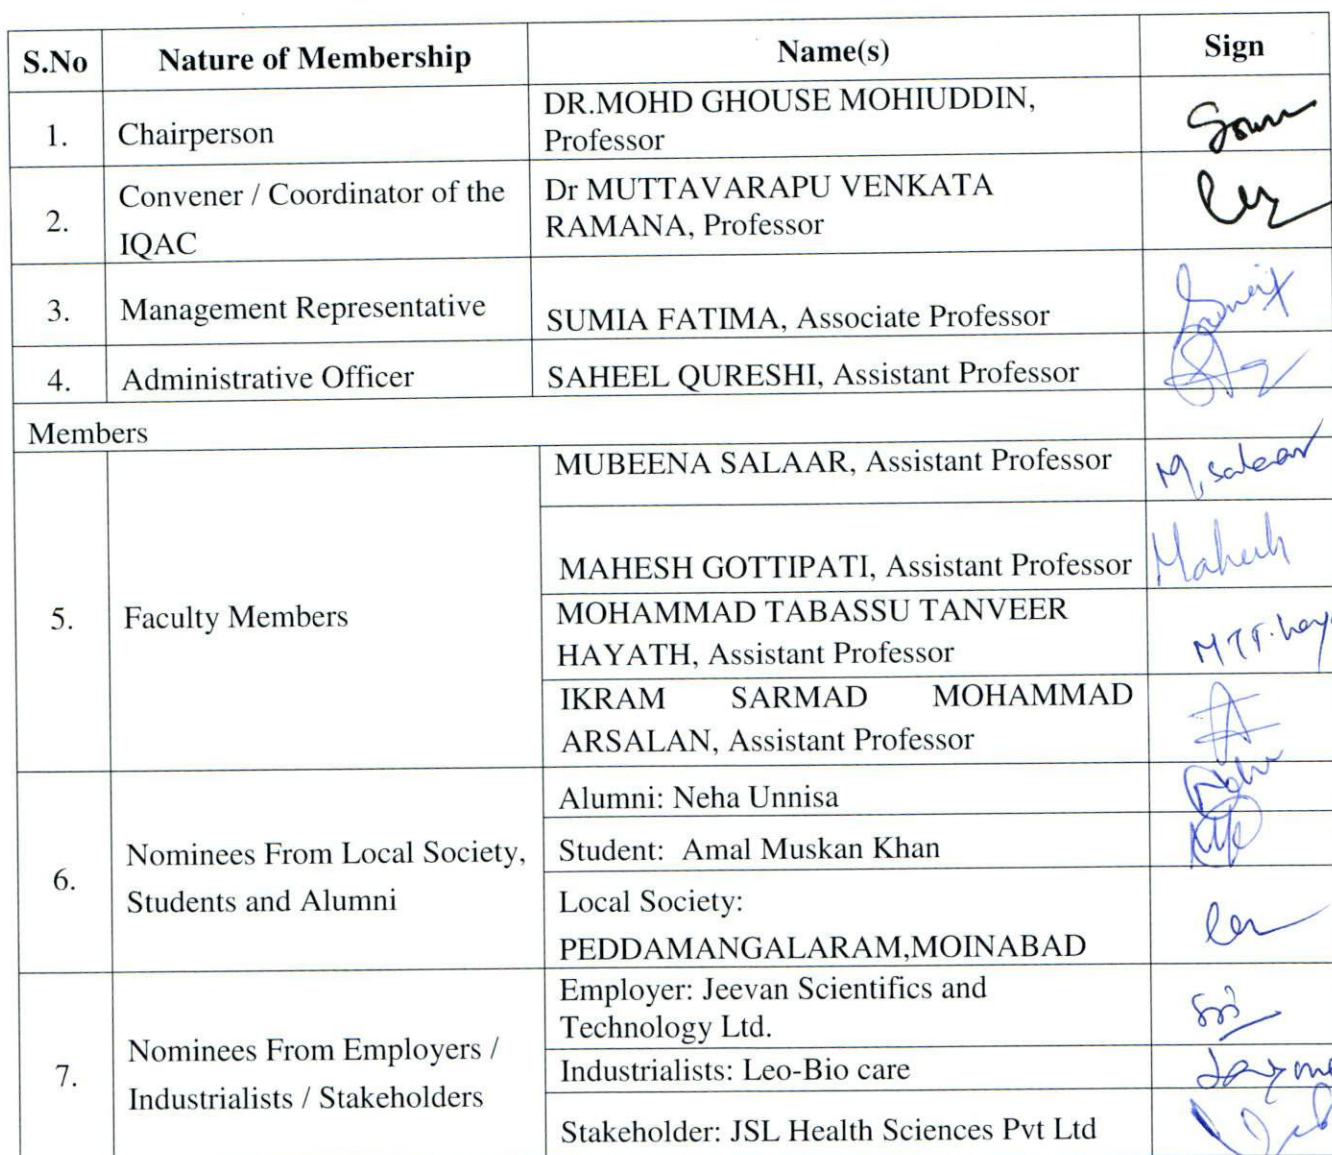 S.No Nature of Membership Name(s) Sign
1. Chairperson DR.MOHD GHOUSE MOHIUDDIN,
Professor
2. Convener / Coordinator of the
IQAC
Dr MUTTAVARAPU VENKATA
RAMANA, Professor
3. Management Representative SUMIA FATIMA, Associate Professor
4. Administrative Officer SAHEEL QURESHI, Assistant Professor
Members
5. Faculty Members
MUBEENA SALAAR, Assistant Professor M, salaar
MAHESH GOTTIPATI, Assistant Professor Mahesh
MOHAMMAD TABASSU TANVEER
HAYATH, Assistant Professor
IKRAM SARMAD MOHAMMAD
ARSALAN, Assistant Professor
6. Nominees From Local Society,
Students and Alumni
Alumni: Neha Unnisa
Student: Amal Muskan Khan
Local Society:
PEDDAMANGALARAM,MOINABAD
7. Nominees From Employers /
Industrialists / Stakeholders
Employer: Jeevan Scientifics and
Technology Ltd.
Industrialists: Leo-Bio care
Stakeholder: JSL Health Sciences Pvt Ltd